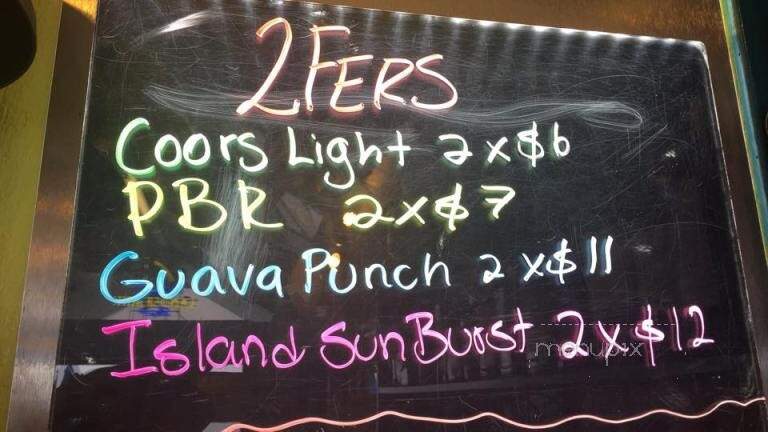 2FERS
Coors Light 2 x $6
PBR 2 x $7
Guava Punch 2 x $11
Island SunBurst 2 x $12
menupix